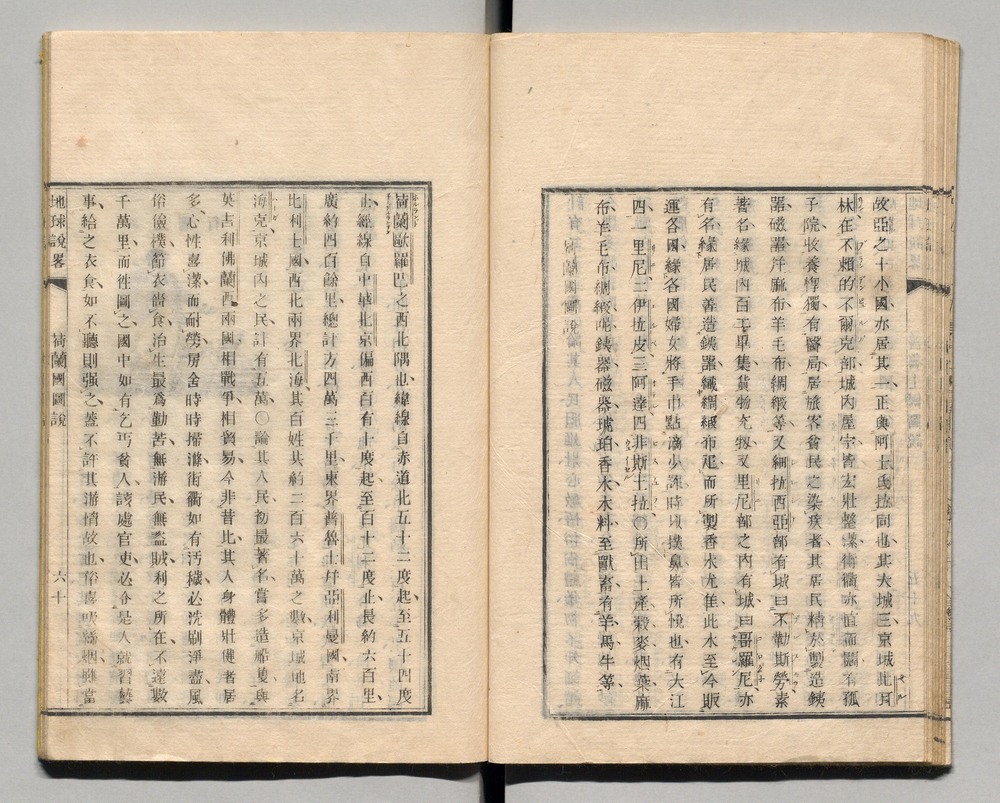 故亞之十小國亦居其一正與阿士氐拉同也其大城三京城比耳
林在不賴的不爾克部城內屋宇皆宏壯整潔街衢亦直而闊有孤
子院收養惸獨有醫局居旅客貧民之染疾者其居民精於製造鐵
器磁器洋麻布羊毛布綢緞等又細拉西亞部有城曰不勒斯勞素
著名緣城內百工畢集貨物充牣又里尼部之內有城曰哥羅尼亦
有名緣居民善造鐵器織綢緞布疋而所製香水尤佳此水至今販
運各國緣各國婦女將手巾點滴少許時取撲鼻皆所悅也有大江
四一里尼二伊拉皮三阿達四非斯土拉〇所出土產穀麥烟葉麻
布羊毛布綢緞呢鐵器磁器琥珀香水木料至獸畜有羊馬牛等
荷蘭國圖說
荷蘭歐羅巴之西北隅也緯線自赤道北五十二度起至五十四度
止經線自中華北京偏西百有十度起至百十二度止長約六百里
廣約四百餘里總計方四萬三千里東界普魯士幷亞利曼國南界
比利士國西北兩界北海其百姓共約二百六十萬之數京城地名
海克京城內之民計有五萬〇論其人民初最著名嘗多造船隻與
英吉利佛蘭西兩國相戰爭相貿易今非昔比其人身體壯健者居
多心性喜潔而耐勞房舍時時掃滌街衢如有汚穢必洗刷淨盡風
俗儉樸節衣嗇食治生最爲勤苦無游民無盜賊利之所在不遠數
千萬里而往圖之國中如有乞丐貧人該處官吏必令是人就習藝
事給之衣食如不聽則强之蓋不許其游惰故也俗喜吸菸烟雖當
地球說畧
荷蘭國圖說
六十